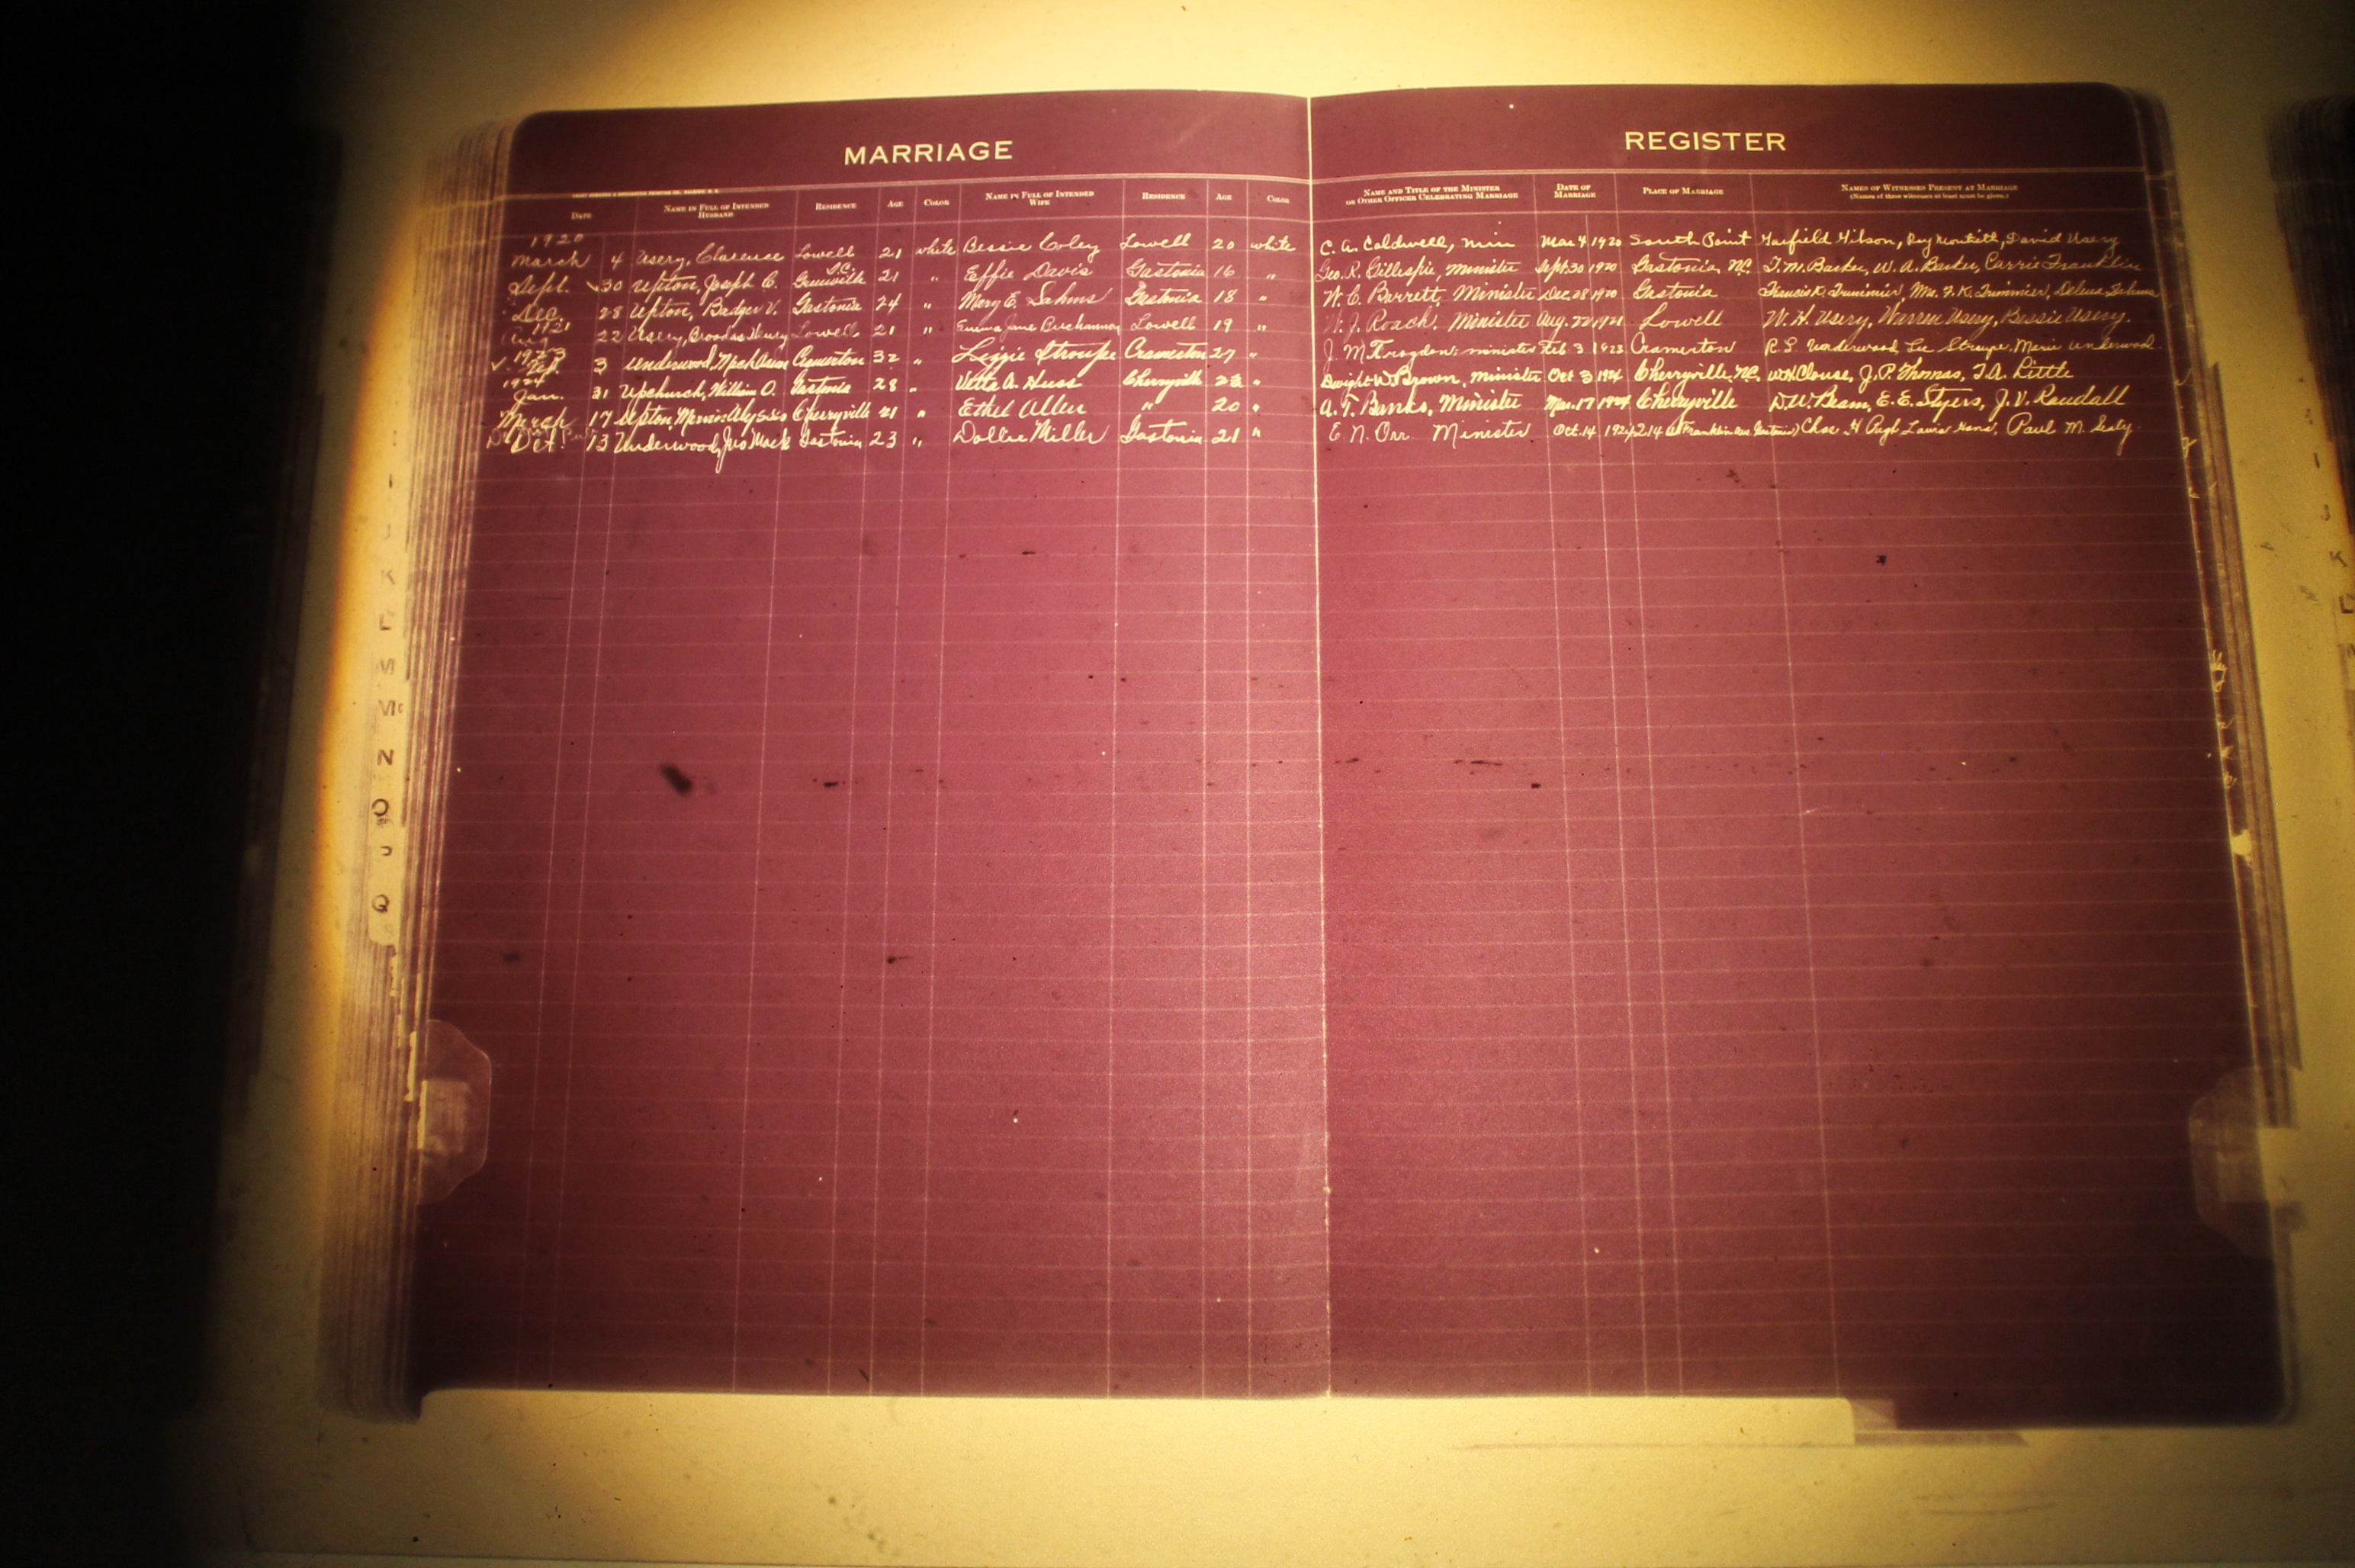 MARRIAGE REGISTER
DATE NAME IN FULL OF INTENDED HUSBAND RESIDENCE AGE COLOR NAME IN FULL OF INTENDED WIFE RESIDENCE AGE COLOR NAME AND TITLE OF THE MINISTER OR OTHER OFFICER CELEBRATING MARRIAGE DATE OF MARRIAGE PLACE OF MARRIAGE NAMES OF WITNESSES PRESENT AT MARRIAGE (Names of three witnesses at least must be given.)
1920
March 4 Usery, Clarence Lowell 21 white Bessie Coley Lowell 20 white C. A. Caldwell, min Mar 4 1920 South Point Garfield Gibson, Ray David Usery
Sept. 30 Upton, Joseph C. Greenville S.C. 21 " Effie Davis Gastonia 16 " Geo. R. Gillespie, Minister Sept. 30 1920 Gastonia, N.C. T. M. Barker, W. A. Barker, Carrie Franklin
Dec. 28 Upton, Badger V. Gastonia 24 " Mary E. Gastonia 18 " W. C. Barrett, Minister Dec. 28 1920 Gastonia Francis K. Trummier, Mrs. F. K. Trummier,
1921
Aug 22 Usery, Henry Lowell 21 " Emma Jane Buchannon Lowell 19 " W. J. Roach, Minister Aug. 22 1921 Lowell W. H. Usery, Warren Usery, Bessie Usery.
1923
Feb. 3 Underwood, Cramerton 32 " Lizzie Stroupe Cramerton 27 " J. M. minister Feb 3 1923 Cramerton R. L. Underwood, Lee Stroupe, Marie Underwood.
1924
Jan. 31 Upchurch, William O. Gastonia 28 " Vetta A. Huss Cherryville " Dwight W. Brown, minister Oct 3 1924 Cherryville, N.C. W.H. Clouse, J. P. Thomas, T. A. Little
March 17 Upton, Cherryville 21 " Ethel Allen " 20 " A. T. Banks, Minister Mar. 17 1924 Cherryville D. W. Beam, E. E. Styers, J. V. Randall
Oct. 13 Underwood, Jno Mack Gastonia 23 " Dollie Miller Gastonia 21 " E. N. Orr Minister Oct. 14 214 Franklin Ave Gastonia Chas. H Pugh Laura Paul M.
K
L
M
Mc
N
O
P
Q